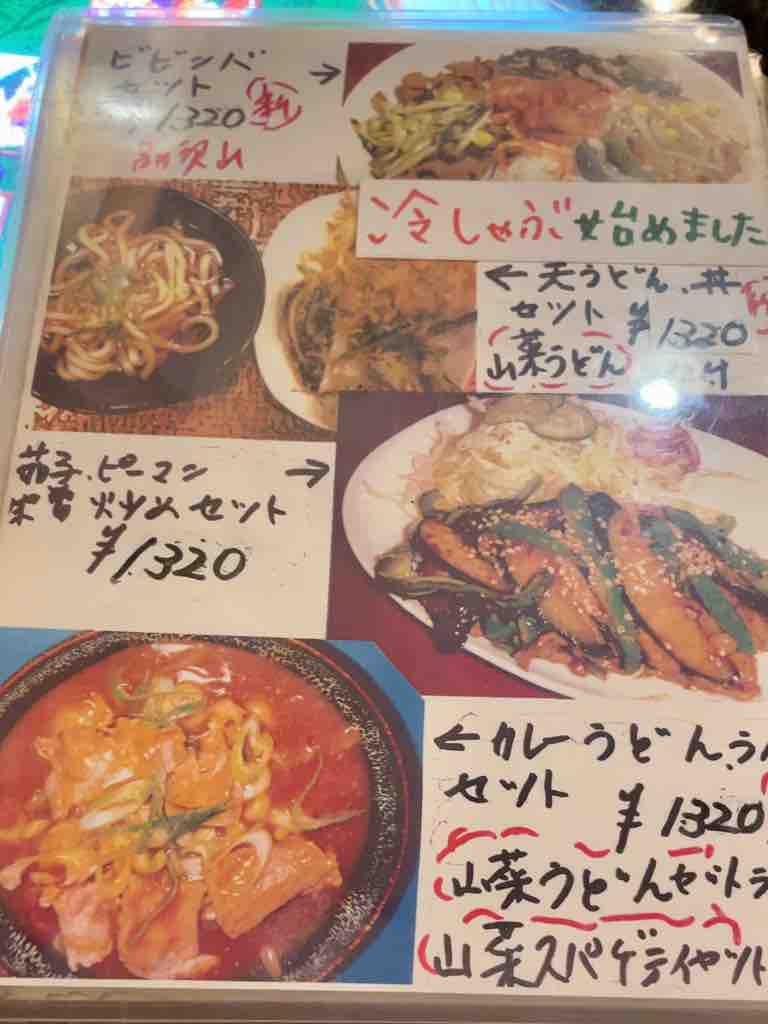 ビビンバ
セット →
¥1320 新
冷しゃぶ始めました
← 天うどん、丼
セット ¥1320
(山菜うどん)
茄子、ピーマン →
炒めセット
¥1320
← カレーうどん、う
セット ¥1320
(山菜うどんセット
(山菜スパゲティセット